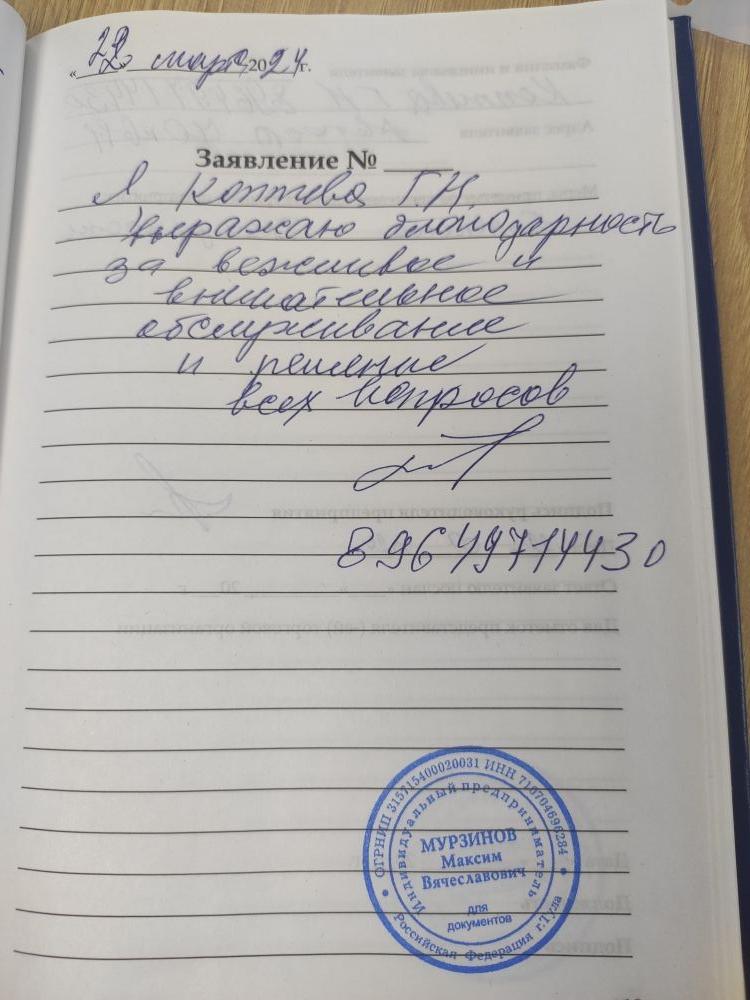 « 22 » марта 2024г.
Заявление № ______
Я Коптева ГН
выражаю благодарность
за вежливое и
внимательное
обслуживание
и решение
всех вопросов
89649714430
ОГРНИП 315715400020031 ИНН 710704696284
Индивидуальный предприниматель
МУРЗИНОВ
Максим
Вячеславович
для
документов
Российская Федерация г.Тула